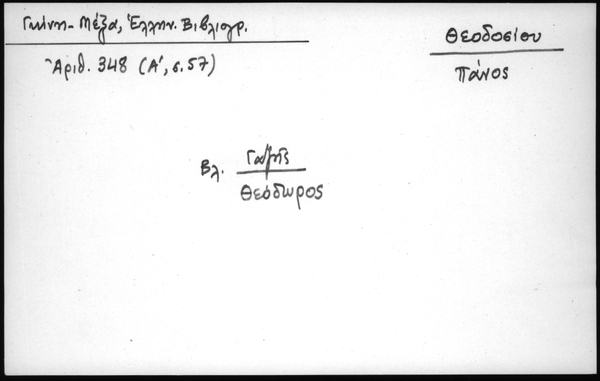 Γκίνη-Μέξα, Ἑλλην. Βιβλιογρ.
Ἀριθ. 348 (Α', σ.57)
Θεοδοσίου
Πάνος
Βλ. Γαζῆς
Θεόδωρος